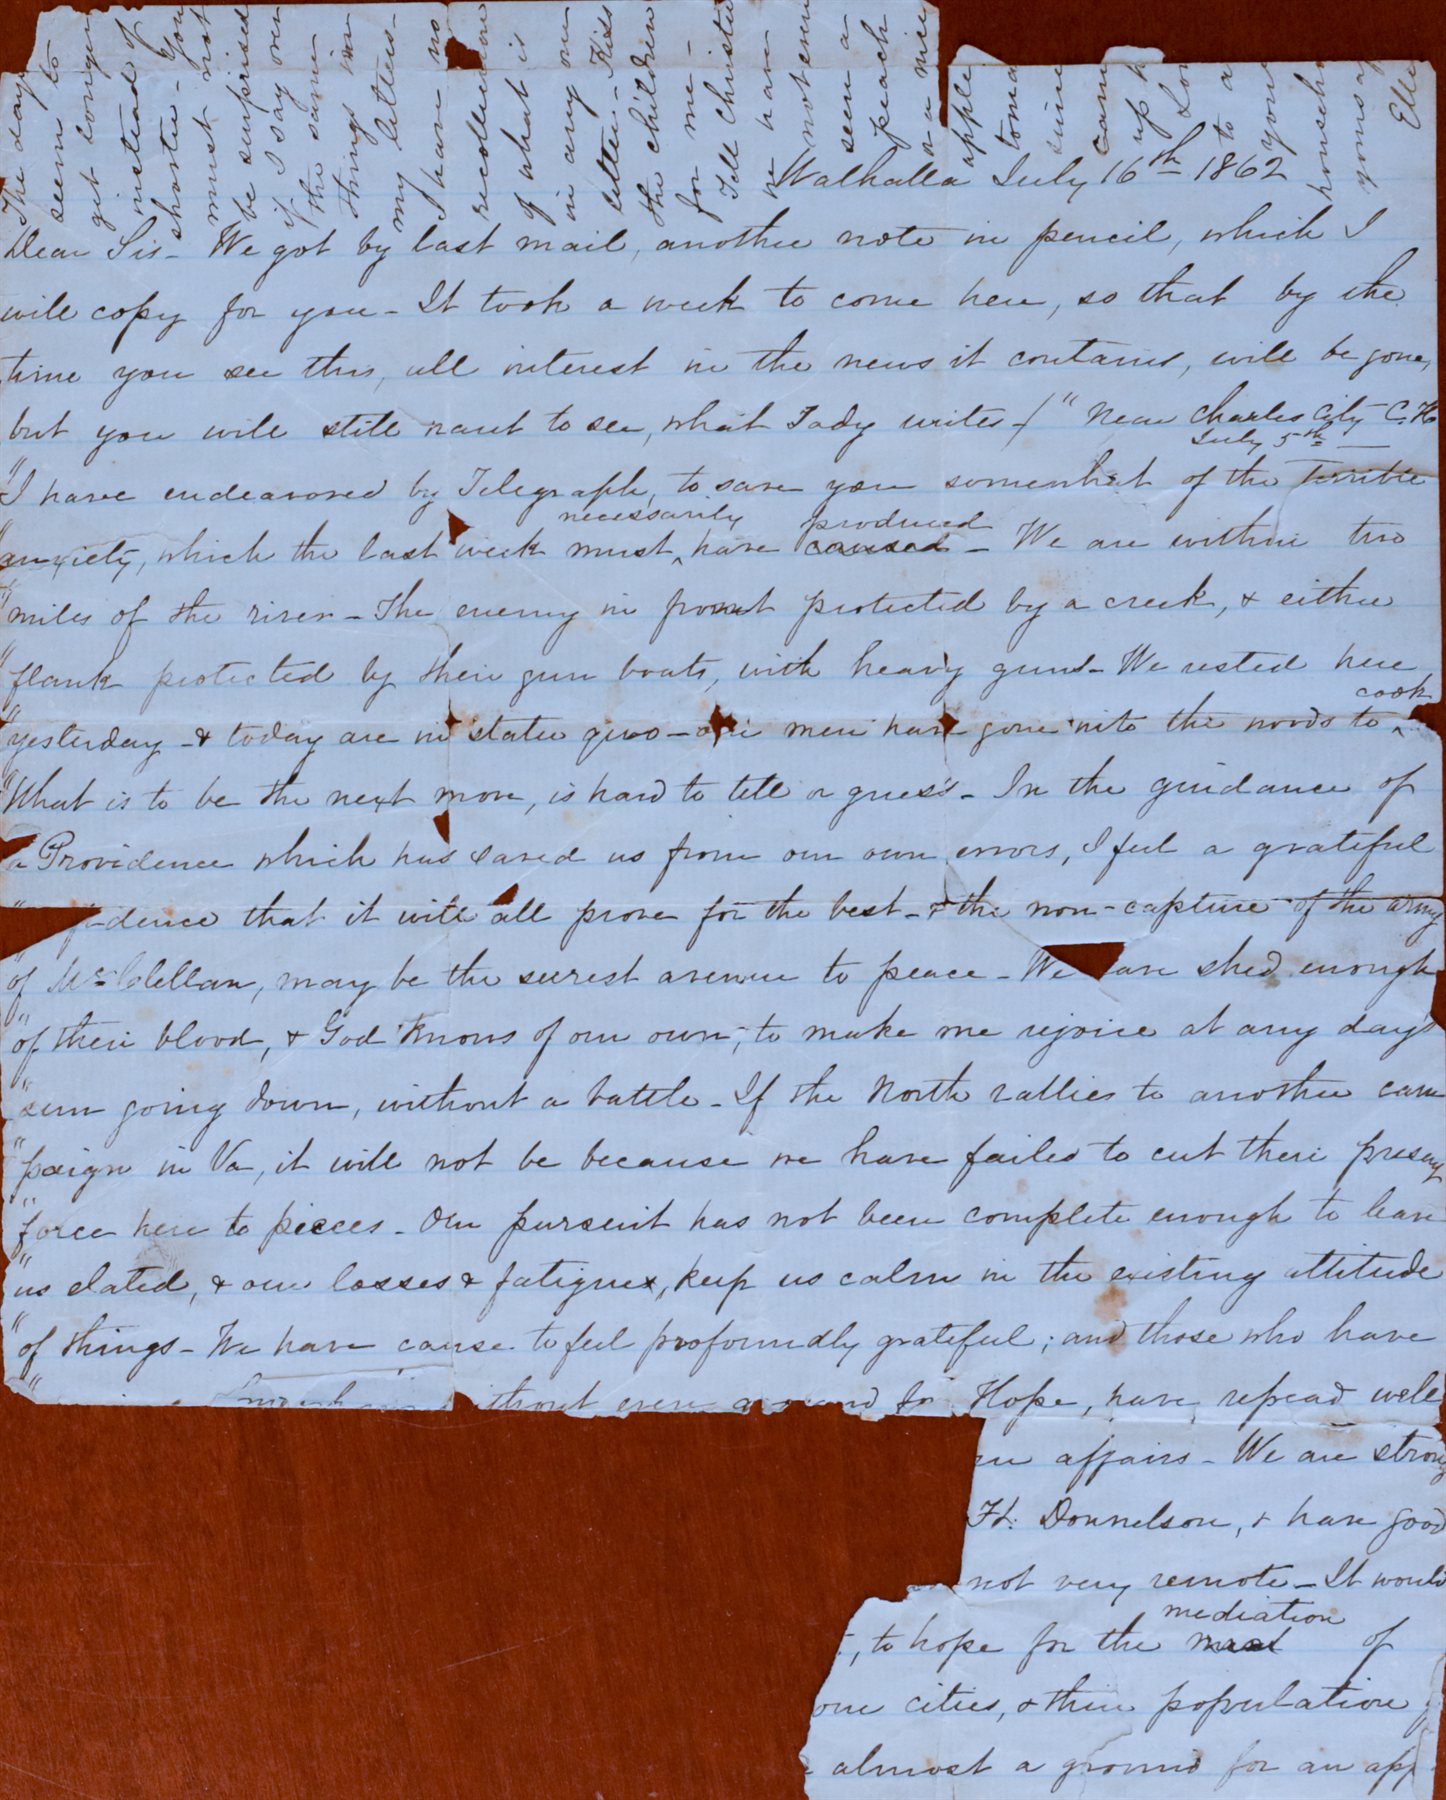 The days
seem to
get longer
instead of
shorter - You
must not
be surprised
if I say over
the same
things in
my letters -
I have no
recollection
of what is
in any one
letter - Kiss
the children
for me -
Tell Christie
we have
not even
seen a
peach
or a nice
apple
toma
since
came
up h
Lov
to a
your
househo
yours af
Elle
Walhalla July 16th 1862
Dear Sis - We got by last mail, another note in pencil, which I
will copy for you - It took a week to come here, so that by the
time you see this, all interest in the news it contains, will be gone,
but you will still want to see, what Tady writes - / "Near Charles City C. H.
July 5th -
"I have endeavored by Telegraph, to save you somewhat of the terrible
necessarily produced
"anxiety, which the last week must ^ have caused - We are within two
"miles of the river - The enemy in front protected by a creek, & either
"flank protected by their gun boats, with heavy guns - We rested here
cook
"yesterday - & today are in statu quo - our men have gone into the woods to ^
"What is to be the next move, is hard to tell or guess - In the guidance of
a Providence which has saved us from our own errors, I feel a grateful
" fidence that it will all prove for the best - & the non-capture of the army
"of McClellan, may be the surest avenue to peace - We have shed enough
"of their blood, & God knows of our own, to make me rejoice at any day's
"sun going down, without a battle - If the North rallies to another cam
"paign in Va, it will not be because we have failed to cut their present
"force here to pieces - Our pursuit has not been complete enough to leave
"us elated, & our losses & fatigues, keep us calm in the existing attitude
"of things - We have cause to feel profoundly grateful; and those who have
" ithout even a ground for Hope, have repead well
affairs - We are strong
Ft. Donnelson, & have good
not very remote - It would
mediation
, to hope for the most of
our cities, & their population
almost a ground for an app